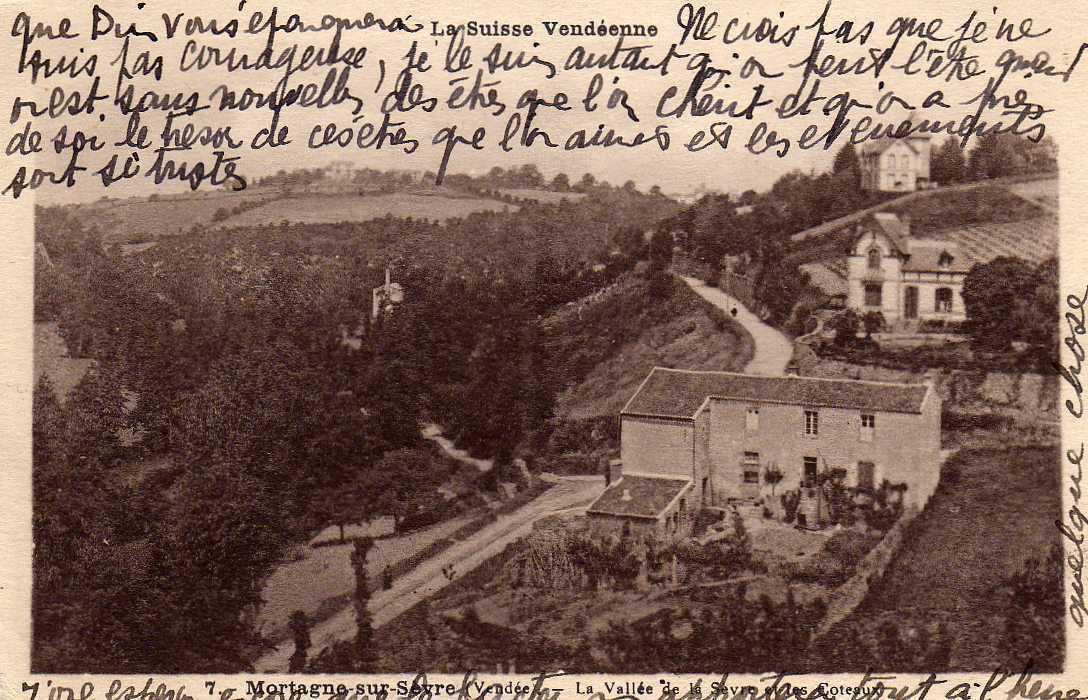 que Dieu vous épargnera La Suisse Vendéenne Ne crois pas que je ne
suis pas courageuse, je le suis autant qu'on peut l'être quand
on est sans nouvelles des êtres que l'on chérit et qu'on a près
de soi le trésor de ces êtres que l'on aime et les événements
sont si tristes
quelque chose
7. Mortagne-sur-Sèvre (Vendée) La Vallée de la Sèvre et les Coteaux
J'ose espérer tout à l'heure